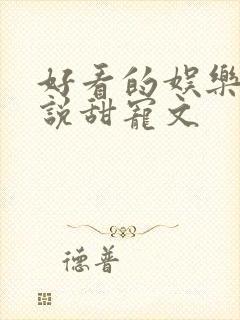 好看的娛樂
說甜寵文
德普